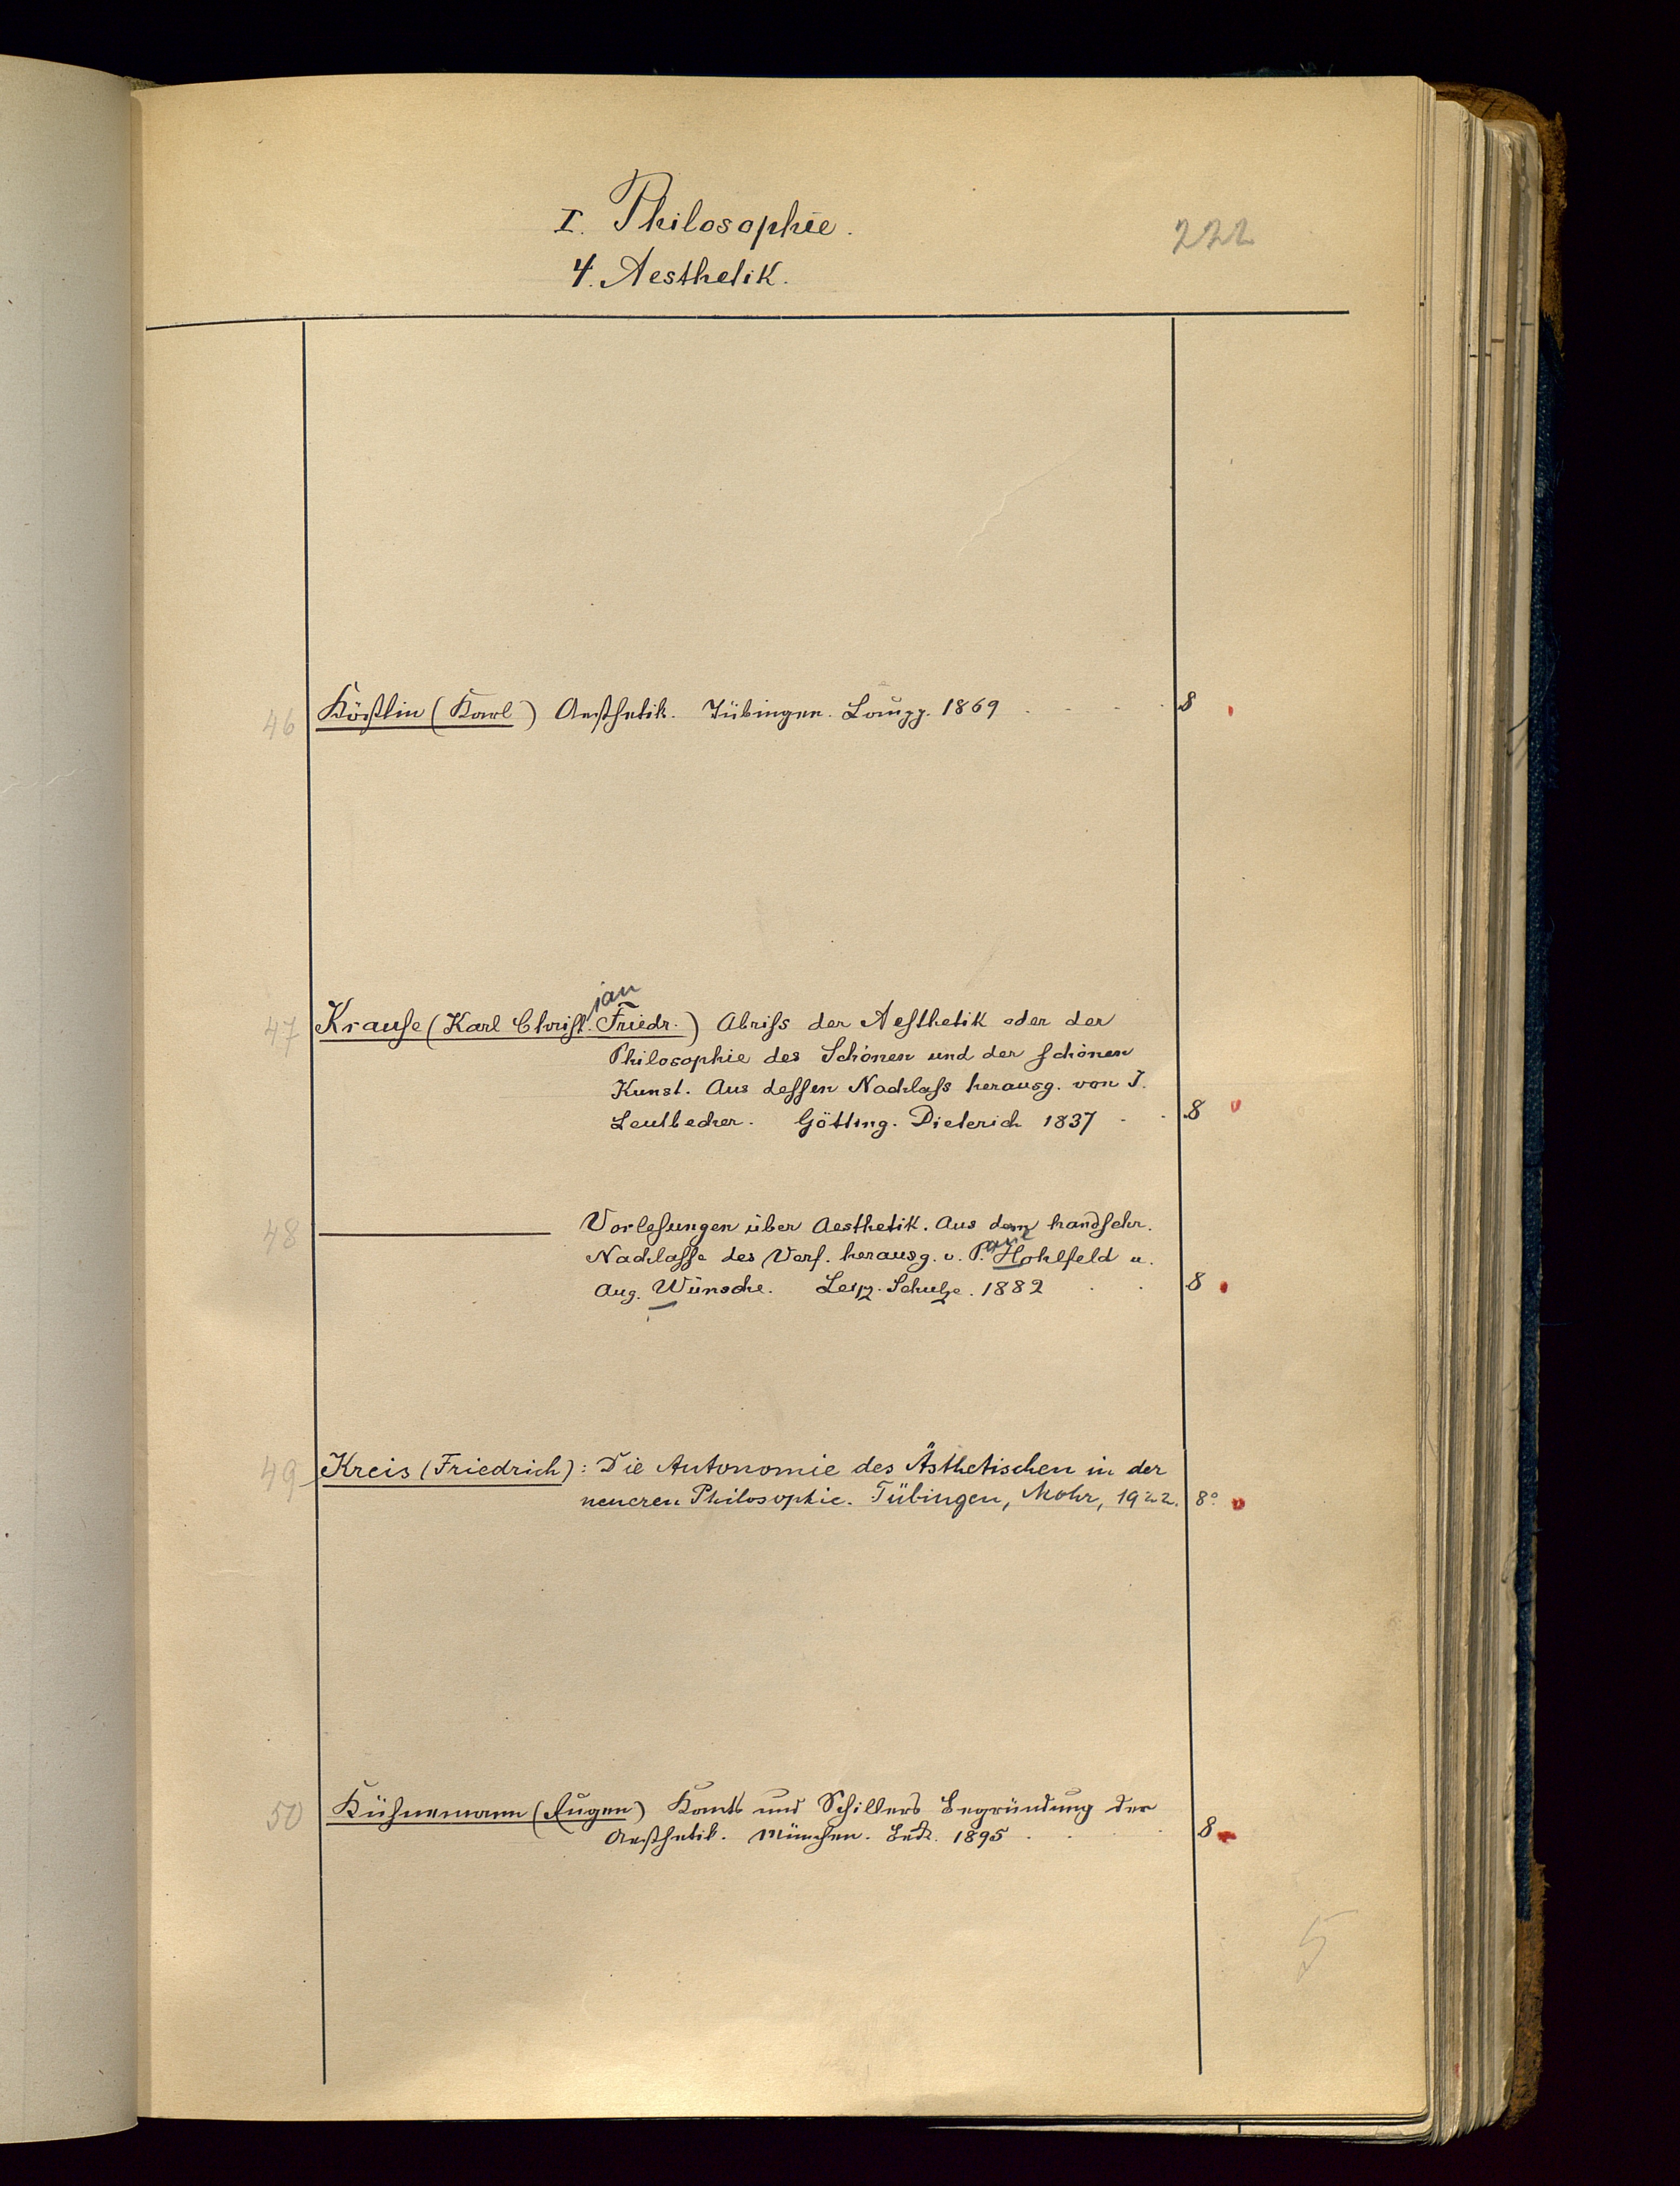 I. Philosophie.
222
4. Aesthetik.
46 Köstlin (Karl) Aesthetik. Tübingen. Laupp. 1869 8
jan
47 Krause (Karl Christ. Friedr.) Abriss der Aesthetik oder der
Philosophie des Schönen und der schönen
Kunst. Aus dessen Nachlass herausg. von J.
Leutbecher. Götting. Dieterich 1837 8
48 Vorlesungen über Aesthetik. Aus dem handschr.
Nachlasse des Verf. herausg. v. P. Hohlfeld u.
Aug. Wünsche. Leipz. Schulze. 1882 8
49 Kreis (Friedrich): Die Autonomie des Ästhetischen in der
neueren Philosophie. Tübingen, Mohr, 1922. 8°
50 Kühnemann (Eugen) Kants und Schillers Begründung der
Aesthetik. München. Beck. 1895 8
5